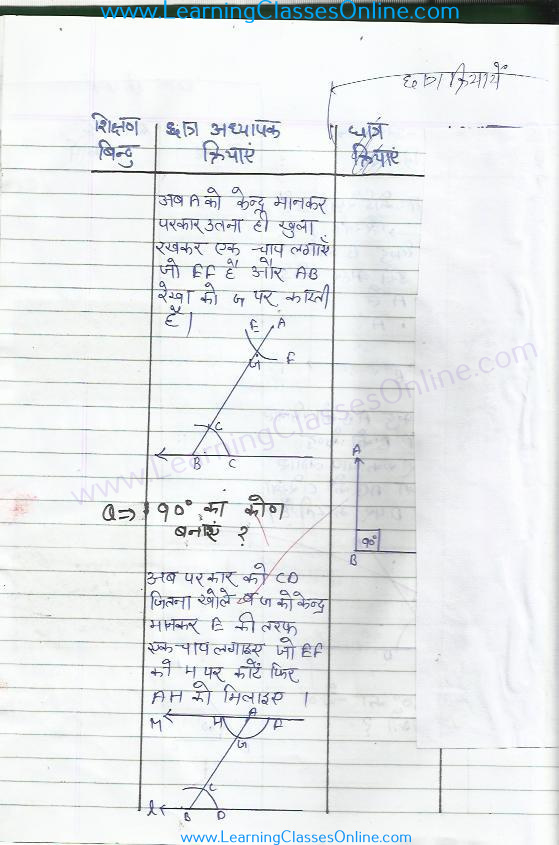 www.LearningClassesOnline.com
छात्र क्रियायें
शिक्षण बिन्दु
छात्र अध्यापक क्रियाएं
छात्र क्रियाएं
अब A को केन्द्र मानकर
परकार उतना ही खुला
रखकर एक चाप लगाएं
जो EF है और AB
रेखा को G पर काटती
है।
E A
G F
C
B C
www.LearningClassesOnline.com
A
90°
B
Q⇒ 90° का कोण
बनाएं ?
अब परकार को CD
जितना खोले व G को केन्द्र
मानकर E की तरफ
एक चाप लगाइए जो EF
को H पर काटें फिर
AH को मिलाइए ।
M H A F
G
C
l B D
www.LearningClassesOnline.com